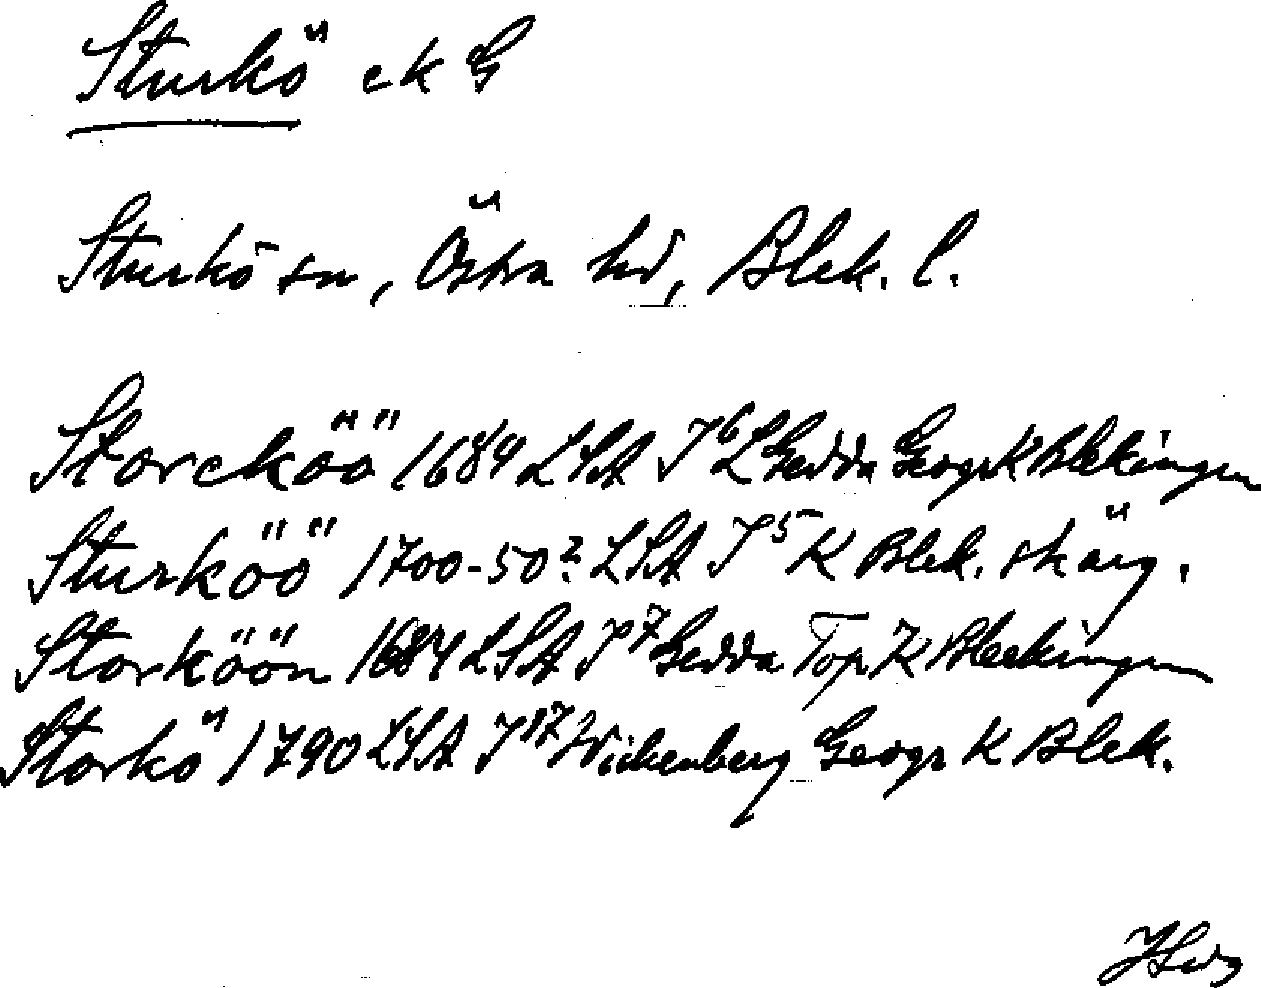 Sturkö ek G
Sturkö sn, Östra hd, Blek. l.
Storcköö 1684 LSA I 6 L Gedda Geogr K Blekingen
Sturköö 1700-50? LSA I 5 K Blek. skärg.
Storköön 1684 LSA I 7 Gedda Top K Bleekingen
Storkö 1790 LSA I 17 Wickenberg Geogr K Blek.